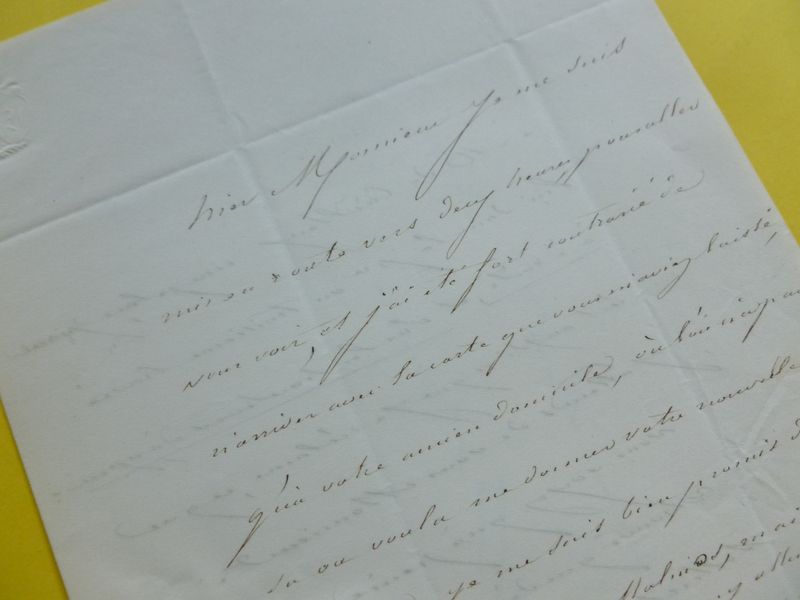 hier Monsieur Je me suis
mis en route vers deux heures, pour aller
vous voir, et j'ai été fort contrarié de
n'arriver avec la carte que vous m'aviez laissé,
qu'à votre ancien domicile, où l'on n'a pas
su ou voulu me donner votre nouvelle
je me suis bien promis d
mais